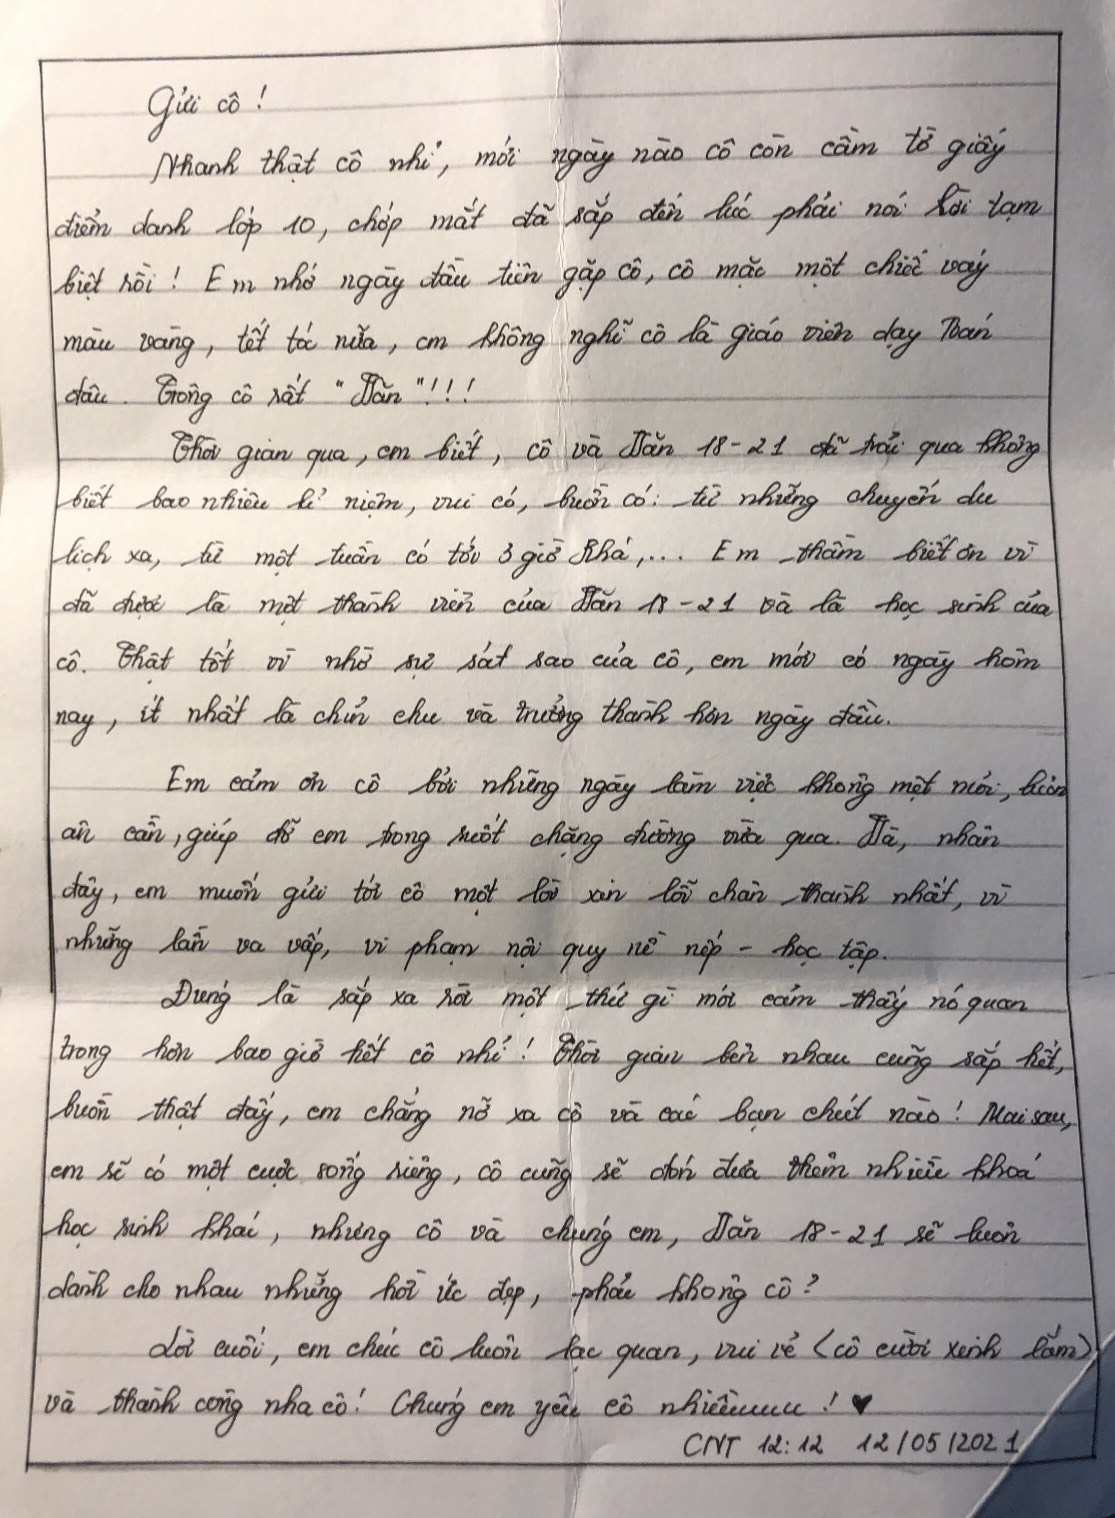 Gửi cô !
Nhanh thật cô nhỉ, mới ngày nào cô còn cầm tờ giấy
điểm danh lớp 10, chớp mắt đã sắp đến lúc phải nói lời tạm
biệt rồi ! Em nhớ ngày đầu tiên gặp cô, cô mặc một chiếc váy
màu vàng, tết tóc nữa, em không nghĩ cô là giáo viên dạy Toán
đâu. Trông cô rất "Văn"!!!
Thời gian qua, em biết, cô và Văn 18-21 đã trải qua không
biết bao nhiêu kỉ niệm, vui có, buồn có: từ những chuyến du
lịch xa, từ một tuần có tới 3 giờ Khá,... Em thầm biết ơn vì
đã được là một thành viên của Văn 18-21 và là học sinh của
cô. Thật tốt vì nhờ sự sát sao của cô, em mới có ngày hôm
nay, ít nhất là chỉn chu và trưởng thành hơn ngày đầu.
Em cảm ơn cô bởi những ngày làm việc không mệt mỏi, luôn
ân cần, giúp đỡ em trong suốt chặng đường vừa qua. Và, nhân
đây, em muốn gửi tới cô một lời xin lỗi chân thành nhất, vì
những lần va vấp, vi phạm nội quy nề nếp - học tập.
Đúng là sắp xa rời một thứ gì mới cảm thấy nó quan
trong hơn bao giờ hết cô nhỉ! Thời gian bên nhau cũng sắp hết,
buồn thật đấy, em chẳng nỡ xa cô và các bạn chút nào! Mai sau,
em sẽ có một cuộc sống riêng, cô cũng sẽ đón đưa thêm nhiều khoá
học sinh khác, nhưng cô và chúng em, Văn 18-21 sẽ luôn
dành cho nhau những hồi ức đẹp, phải không cô?
Lời cuối, em chúc cô luôn lạc quan, vui vẻ (cô cười xinh lắm)
và thành công nha cô! Chúng em yêu cô nhiềuuuu! ♥
CNT 12:12 12/05/2021